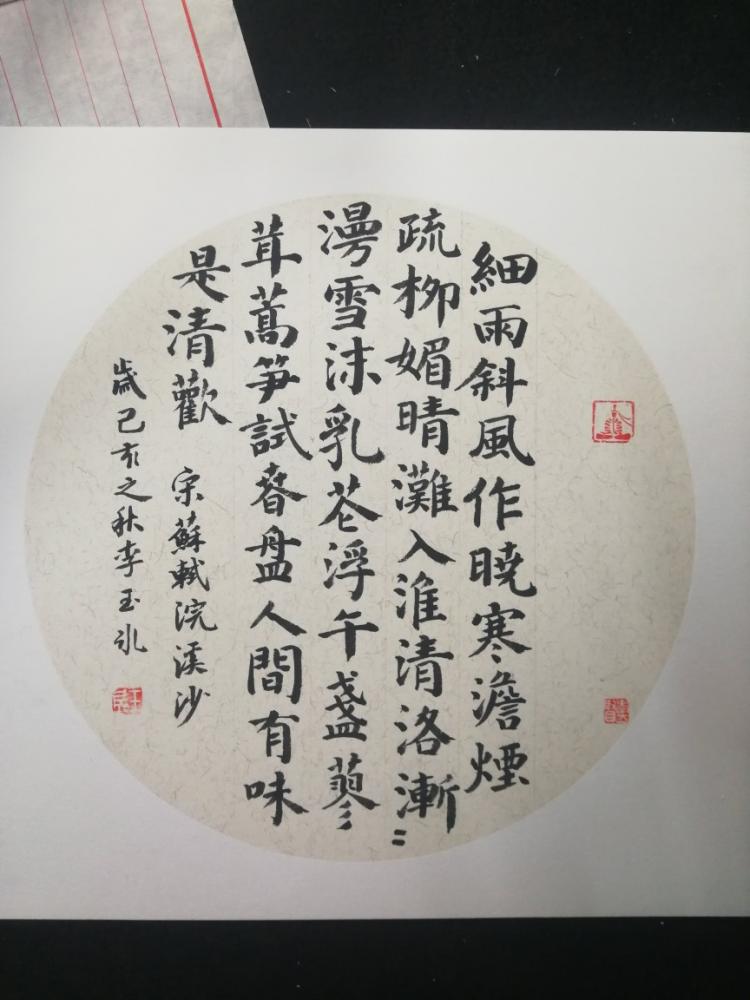 細雨斜風作曉寒澹煙
疏柳媚晴灘入淮清洛漸〻
漫雪沫乳花浮午盞蓼
茸蒿笋試春盤人間有味
是清歡 宋蘇軾浣溪沙
歲己亥之秋李玉冰